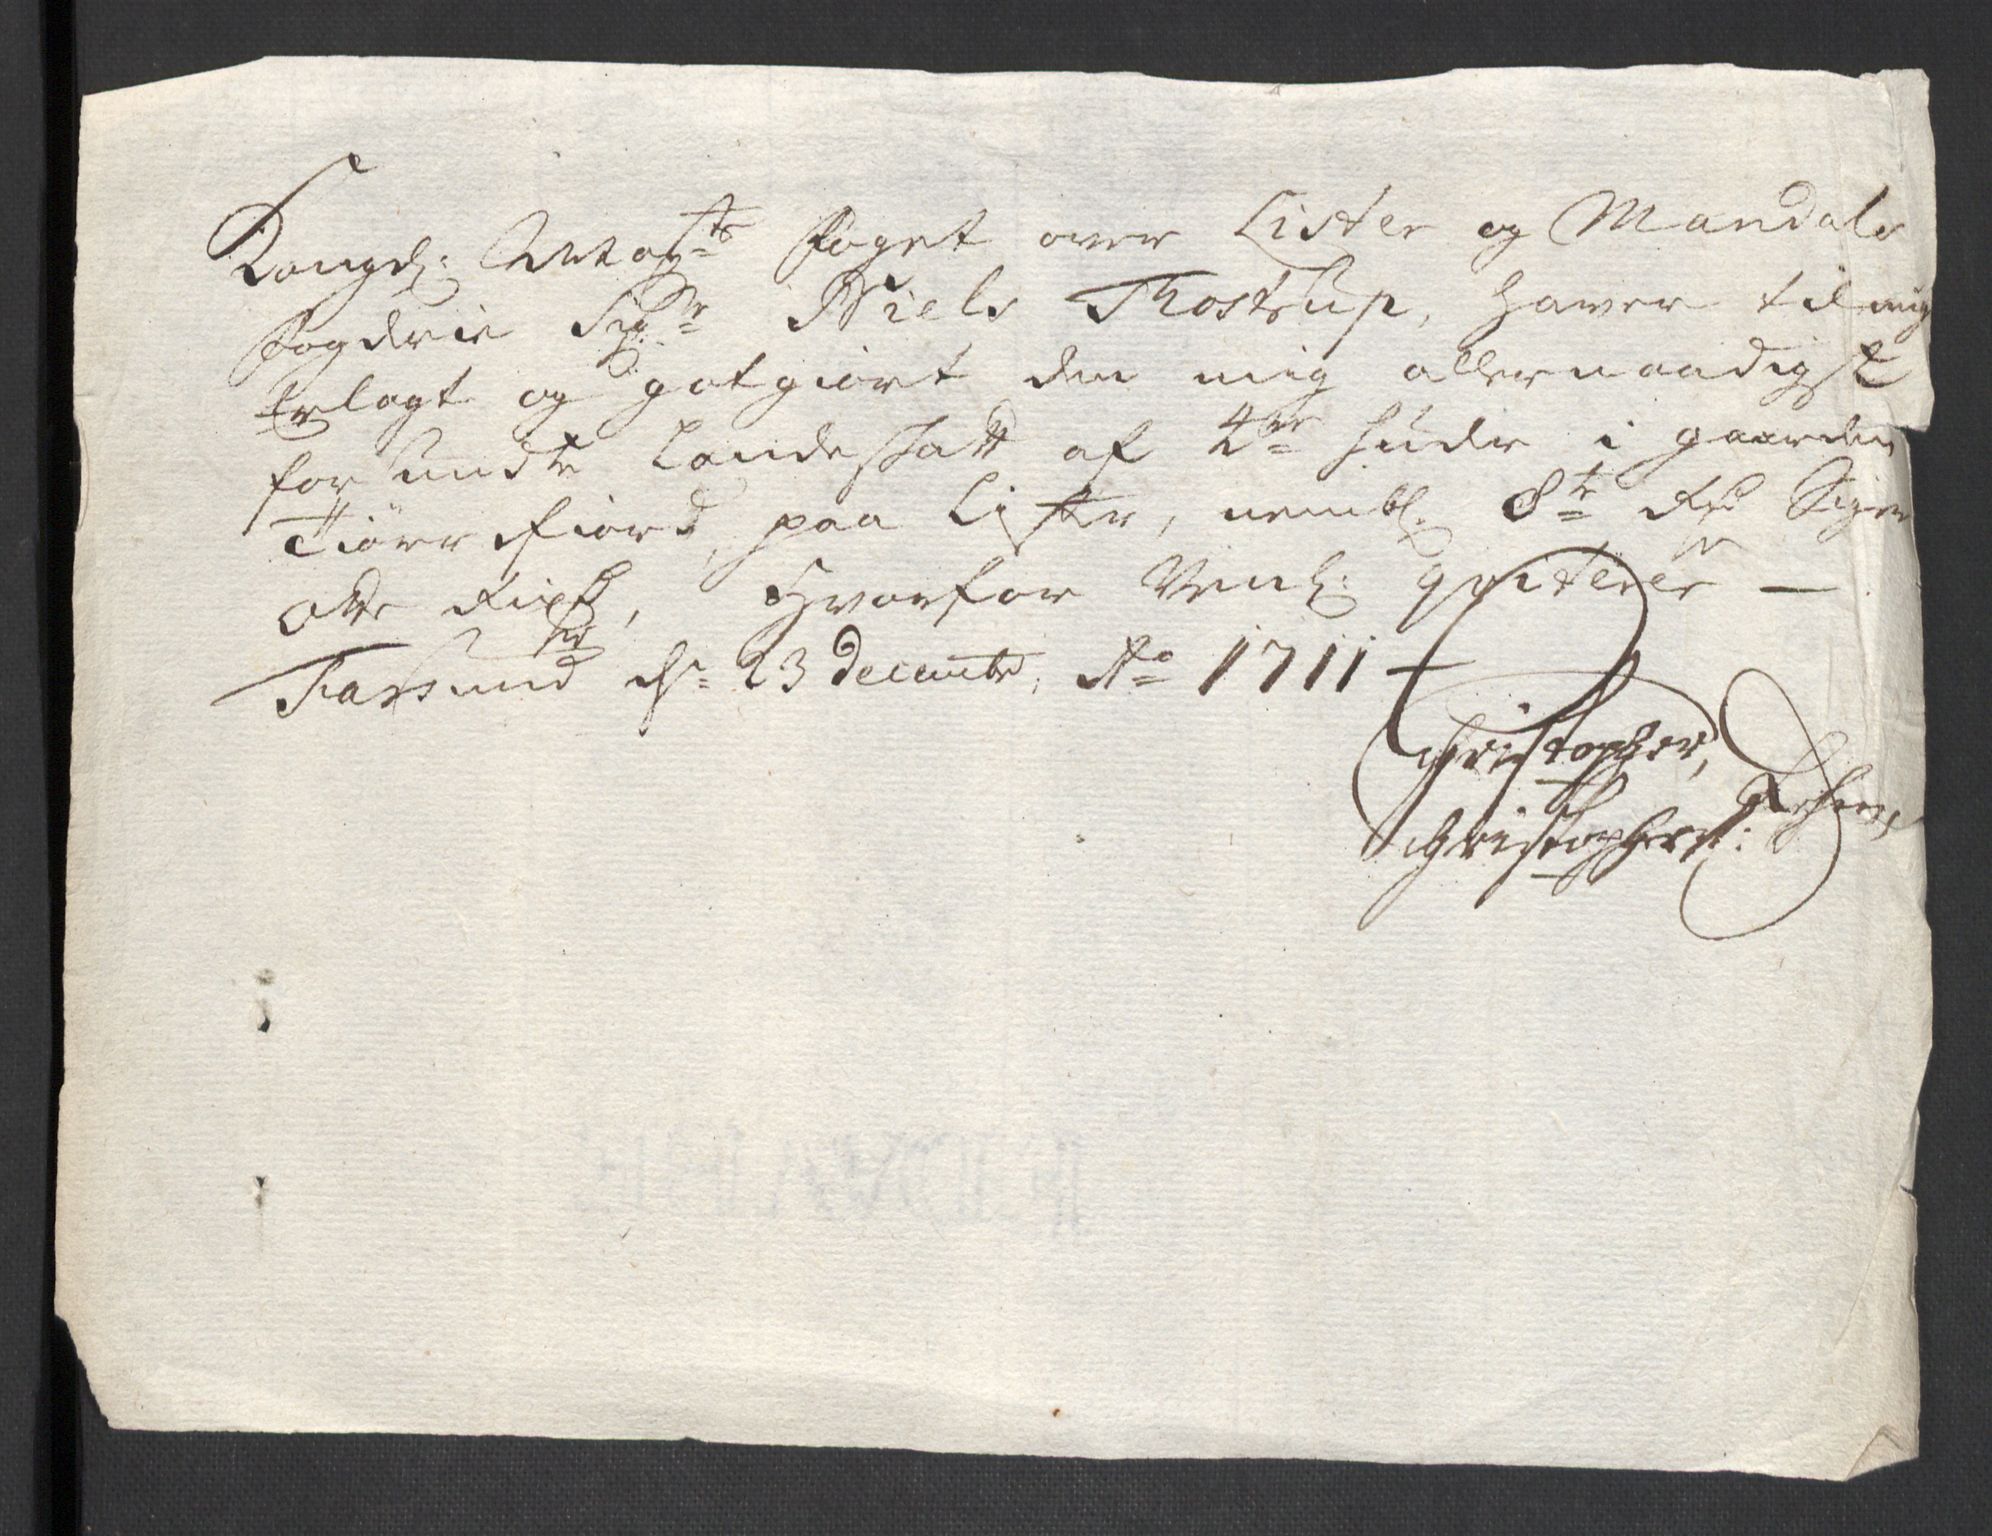 Kongel: Mayts Foget over Lister og Mandals
fogderie Sigr Niels Thostrup, haver til mig
Erlagt og gotgiort den mig allernaadigst
forundte Landeskatt af 4re huder i gaarden
Tiörrefiord, paa Lister, nembl. 8te Rdr Siger
otte Rixdr, Hvorfor Venl: qviterer —
Farsund dn 23 decembr. Ao 1711
Christopher,
Christophers: